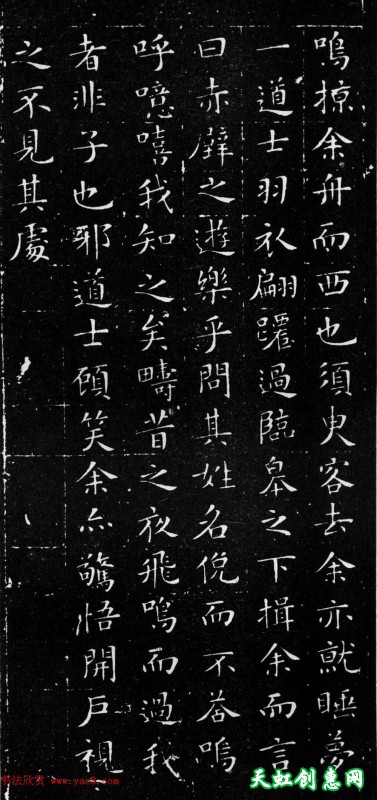 鳴掠余舟而西也須臾客去余亦就睡夢
一道士羽衣翩躚過臨皋之下揖余而言
曰赤壁之遊樂乎問其姓名俛而不荅嗚
呼噫嘻我知之矣疇昔之夜飛鳴而過我
者非子也邪道士顧笑余亦驚悟開戶視
之不見其處
书法欣赏 www.yac8.com
天虹创惠网